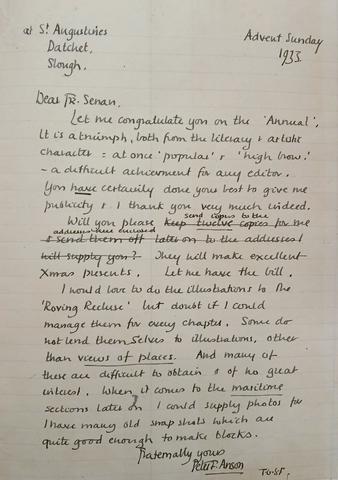 at St Augustines
Datchet,
Slough.
Advent Sunday
1933.
Dear Fr. Senan.
Let me congratulate you on the 'Annual'.
It is a triumph, both from the literary & artistic
character = at once 'popular' & 'high brow.'
- a difficult achievment for any editor.
You have certainly done your best to give me
publicity & I thank you very much indeed.
send copies to the
Will you please keep twelve copies for me
addresses here enclosed
& send them off later on to the addresses I
will supply you? They will make excellent
Xmas presents. Let me have the bill.
I would love to do the illustrations to the
'Roving Recluse' but doubt if I could
manage them for every chapter. Some do
not lend themselves to illustrations, other
than views of places. And many of
these are difficult to obtain & of no great
interest. When it comes to the maritime
sections later on I could supply photos for
I have many old snap shots which are
quite good enough to make blocks.
fraternally yours
Peter F. Anson